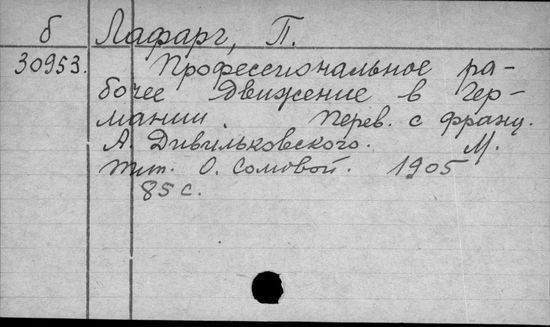 б Лафарг, П.
30953. Профессиональное ра-
бочее движение в Гер-
мании. Перев. с франц.
А. Дивильковского. М.
тип. О. Сомовой. 1905
85 с.